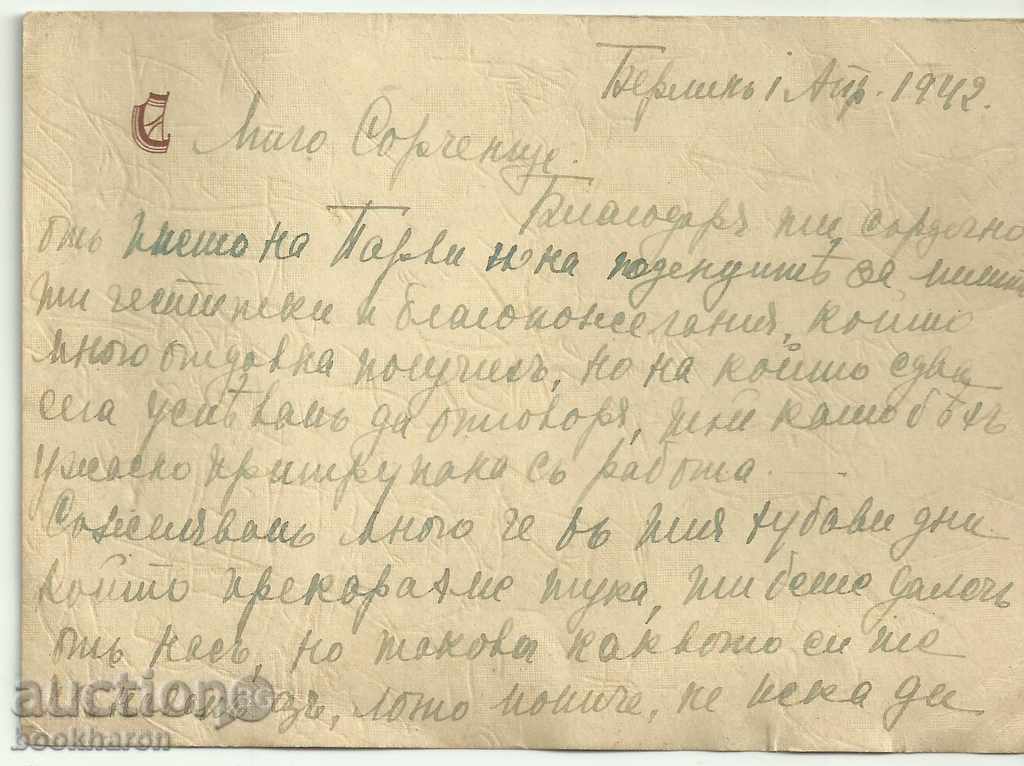 Берлинъ 1 Апр. 1942.
Мило Сърченце.
Благодаря ти сърдечно
отъ името на Първи и на поденцитѣ за милитѣ
ти честитки и благопожелания, които
много отдавна получихъ, но на които едва
сега успѣвамъ да отговоря, тъй като бѣхъ
ужасно притрупана съ работа.
Съжелявамъ много че въ тия хубави дни
който прекарахме тука, ти беше далечъ
отъ насъ, но такова каквото си ти
лошо момиче, не иска да
auction.BG
bookharon